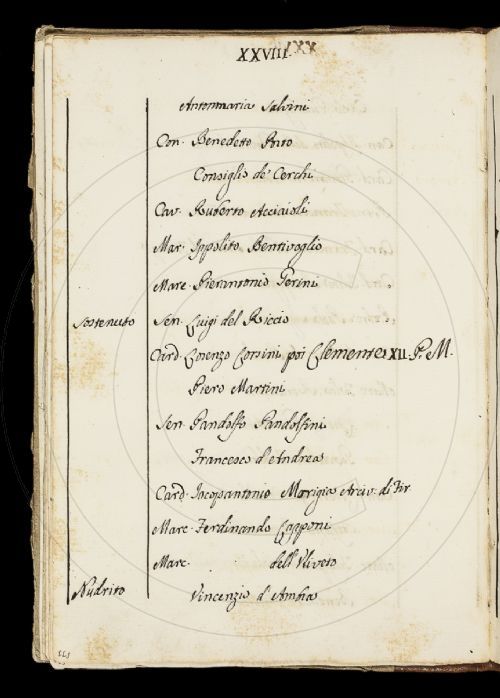 XXVIII
Antonmaria Salvini
Con. Benedetto Porto
Consiglio de' Cerchi
Cav. Ruberto Acciaioli
Mar. Ippolito Bentivoglio
Marc. Pierantonio Gerini
Sostenuto Sen. Luigi del Riccio
Card. Lorenzo Corsini poi Clemente XII. P. M.
Piero Martini
Sen. Pandolfo Pandolfini
Francesco d'Andrea
Card. Jacopantonio Morigia Arciv. di Fir.
Marc. Ferdinando Capponi
Marc. dell' Uliveto
Nudrito Vincenzio d' Ambra